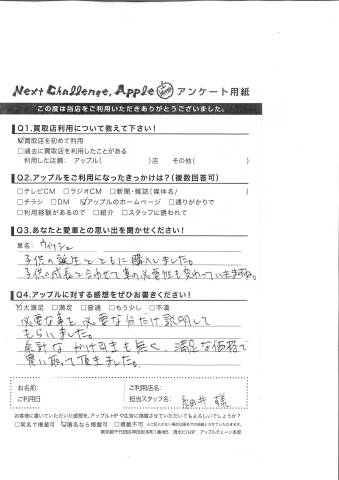 Next Challenge, Apple アンケート用紙
この度は当店をご利用いただきありがとうございました。
Q1.買取店利用について教えて下さい!
☑買取店を初めて利用
□過去に買取店を利用したことがある
利用した店舗: アップル( )店 その他( )
Q2.アップルをご利用になったきっかけは?(複数回答可)
□テレビCM □ラジオCM □新聞・雑誌(媒体名/ )
□チラシ □DM ☑アップルのホームページ □通りがかりで
□利用経験があるので □紹介 □スタッフに誘われて
Q3.あなたと愛車との思い出を聞かせください!
車名: ウィッシュ
子供の誕生とともに購入しました。
子供の成長と合わせて車の必要性も変わっていきますね。
Q4.アップルに対する感想をぜひお書きください!
☑大満足 □満足 □普通 □もう少し □不満
必要な事を必要な分だけ説明して
もらいました。
余計なかけ引きも無く、満足な価格で
買い取って頂きました。
お名前: ご利用店名:
ご利用日 担当スタッフ名: 細井 様
お客様に書いていただいた感想を、アップルHPや広告に掲載させていただいてもよろしいでしょうか?
□実名で掲載可 ☑匿名なら掲載可 □掲載不可 ※ご記入がない場合は匿名での掲載とさせていただきます。
東京都千代田区神田和泉町1番地5 清水ビル5F アップルチェーン本部